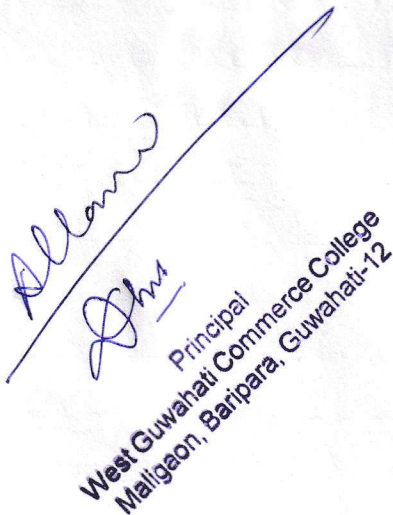 Allowed
Principal
West Guwahati Commerce College
Maligaon, Baripara, Guwahati-12